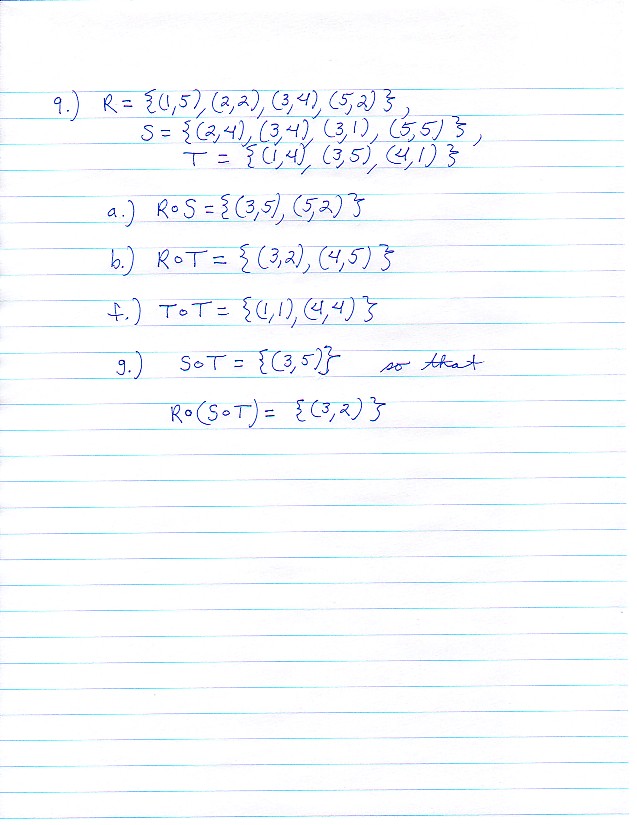 9.) R = {(1,5), (2,2), (3,4), (5,2)},
S = {(2,4), (3,4), (3,1), (5,5)},
T = {(1,4), (3,5), (4,1)}
a.) R∘S = {(3,5), (5,2)}
b.) R∘T = {(3,2), (4,5)}
f.) T∘T = {(1,1), (4,4)}
g.) S∘T = {(3,5)} so that
R∘(S∘T) = {(3,2)}